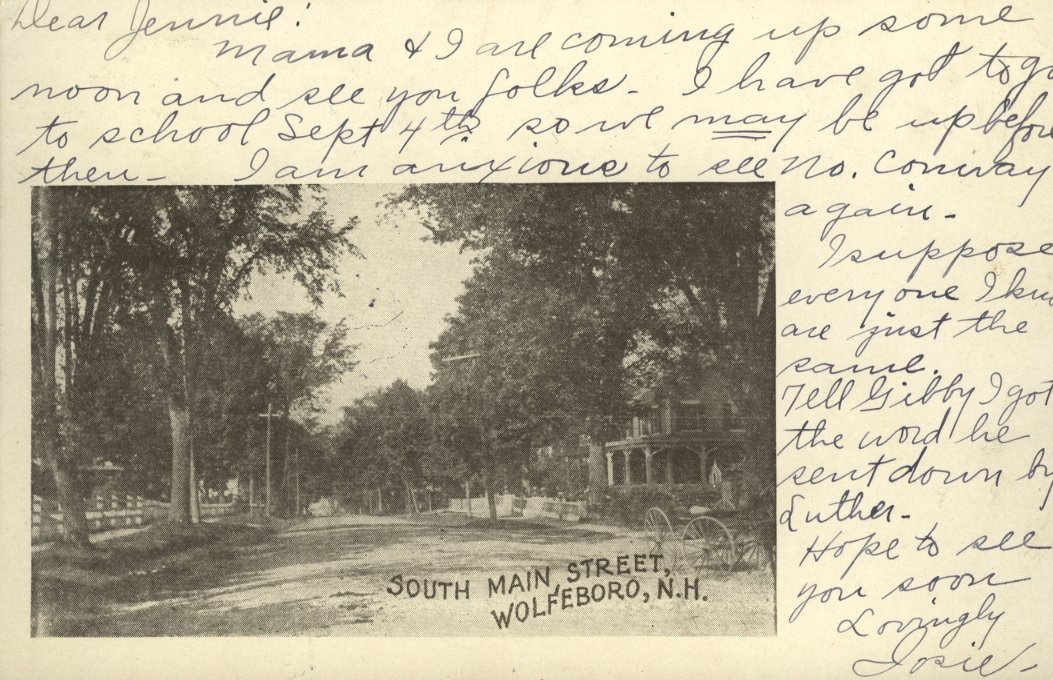 Dear Jennie!
Mama & I are coming up some
noon and see you folks - I have got to go
to school Sept 4th, so we may be up before
then - I am anxious to see No. Conway
again -
I suppose
every one I know
are just the
same.
Tell Gibby I got
the word he
sent down by
Luther -
Hope to see
you soon
Lovingly
Josie -
SOUTH MAIN STREET,
WOLFEBORO, N.H.